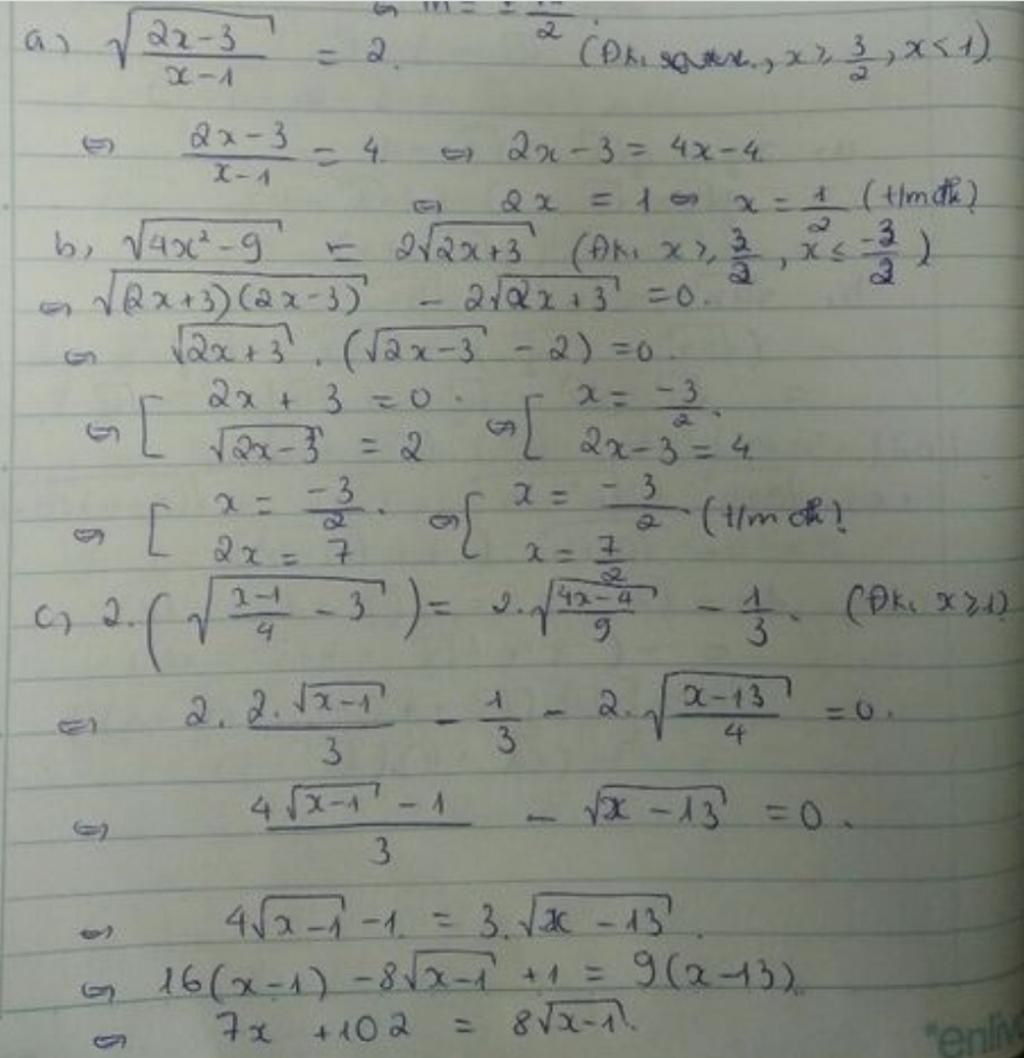 ⇔ m = ± /2.
a) √((2x-3)/(x-1)) = 2. (Đk: , x ≥ 3/2, x < 1)
⇔ (2x-3)/(x-1) = 4 ⇔ 2x-3 = 4x-4
⇔ 2x = 1 ⇔ x = 1/2 (t/m đk)
b, √(4x²-9) = 2√(2x+3) (Đk: x ≥ 3/2, x ≤ -3/2)
⇔ √((2x+3)(2x-3)) - 2√(2x+3) = 0.
⇔ √(2x+3) . (√(2x-3) - 2) = 0.
⇔ [ 2x + 3 = 0 . ⇔ [ x = -3/2.
√(2x-3) = 2 2x-3 = 4
⇔ [ x = -3/2 . ⇔ [ x = -3/2 (t/m đk)
2x = 7 x = 7/2
c, 2.(√((x-1)/4 - 3)) = 2.√((4x-4)/9) - 1/3. (Đk: x ≥ 1)
⇔ 2. 2.√(x-1)/3 - 1/3 - 2.√((x-13)/4) = 0.
⇔ (4√(x-1) - 1)/3 - √(x-13) = 0.
⇔ 4√(x-1) - 1 = 3.√(x-13).
⇔ 16(x-1) - 8√(x-1) + 1 = 9(x-13)
⇔ 7x + 102 = 8√(x-1).